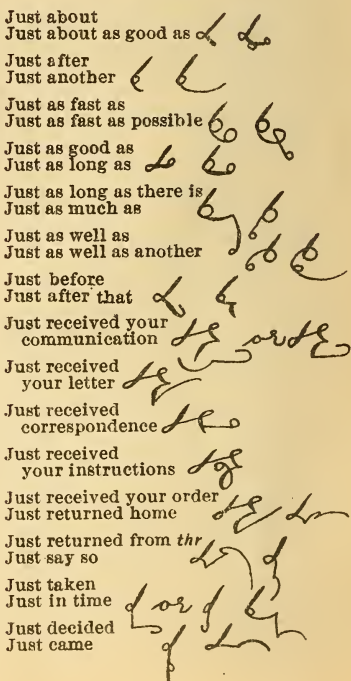 Just about
Just about as good as
Just after
Just another
Just as fast as
Just as fast as possible
Just as good as
Just as long as
Just as long as there is
Just as much as
Just as well as
Just as well as another
Just before
Just after that
Just received your
communication
or
Just received
your letter
Just received
correspondence
Just received
your instructions
Just received your order
Just returned home
Just returned from thr
Just say so
Just taken
Just in time
or
Just decided
Just came